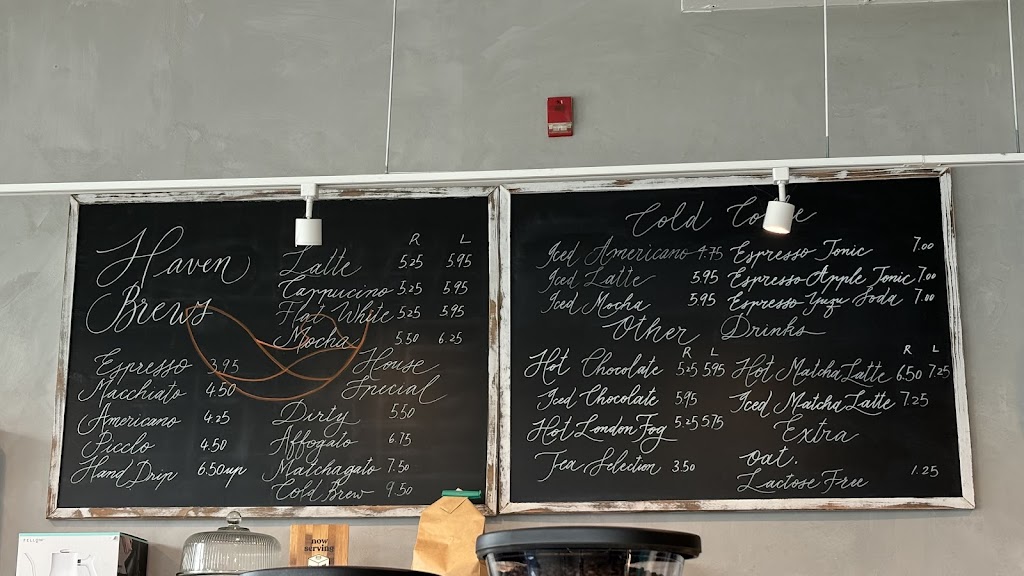 Haven
Brews
Espresso 3.95
Macchiato 4.50
Americano 4.25
Picclo 4.50
Hand Drip 6.50up
R L
Latte 5.25 5.95
Cappucino 5.25 5.95
Flat White 5.25 5.95
Mocha 5.50 6.25
House
Special
Dirty 5.50
Affogato 6.75
Matchagato 7.50
Cold Brew 9.50
Cold Coffee
Iced Americano 4.75 Espresso Tonic 7.00
Iced Latte 5.95 Espresso Apple Tonic 7.00
Iced Mocha 5.95 Espresso Yuzu Soda 7.00
Other Drinks
R L
Hot Chocolate 5.25 5.95
Iced Chocolate 5.95
Hot London Fog 5.25 5.75
Tea Selection 3.50
R L
Hot Matcha Latte 6.50 7.25
Iced Matcha Latte 7.25
Extra
oat.
Lactose Free 1.25
FELLOW
now
serving